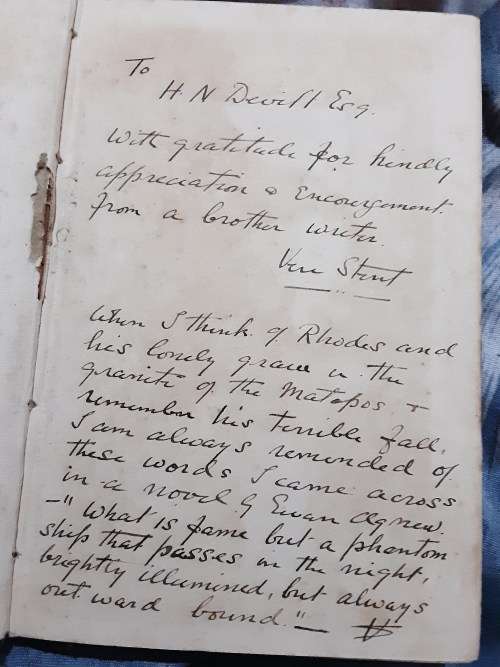 To
H. N Devitt Esq.
With gratitude for kindly
appreciation & Encouragement.
from a brother writer.
Vere Stent
When I think of Rhodes and
his lonely grave in the
granite of the Matopos &
remember his terrible fall,
I am always reminded of
these words I came across
in a novel by Ewan Agnew.
–"What is fame but a phantom
ship that passes in the night,
brightly illumined, but always
out ward bound."–